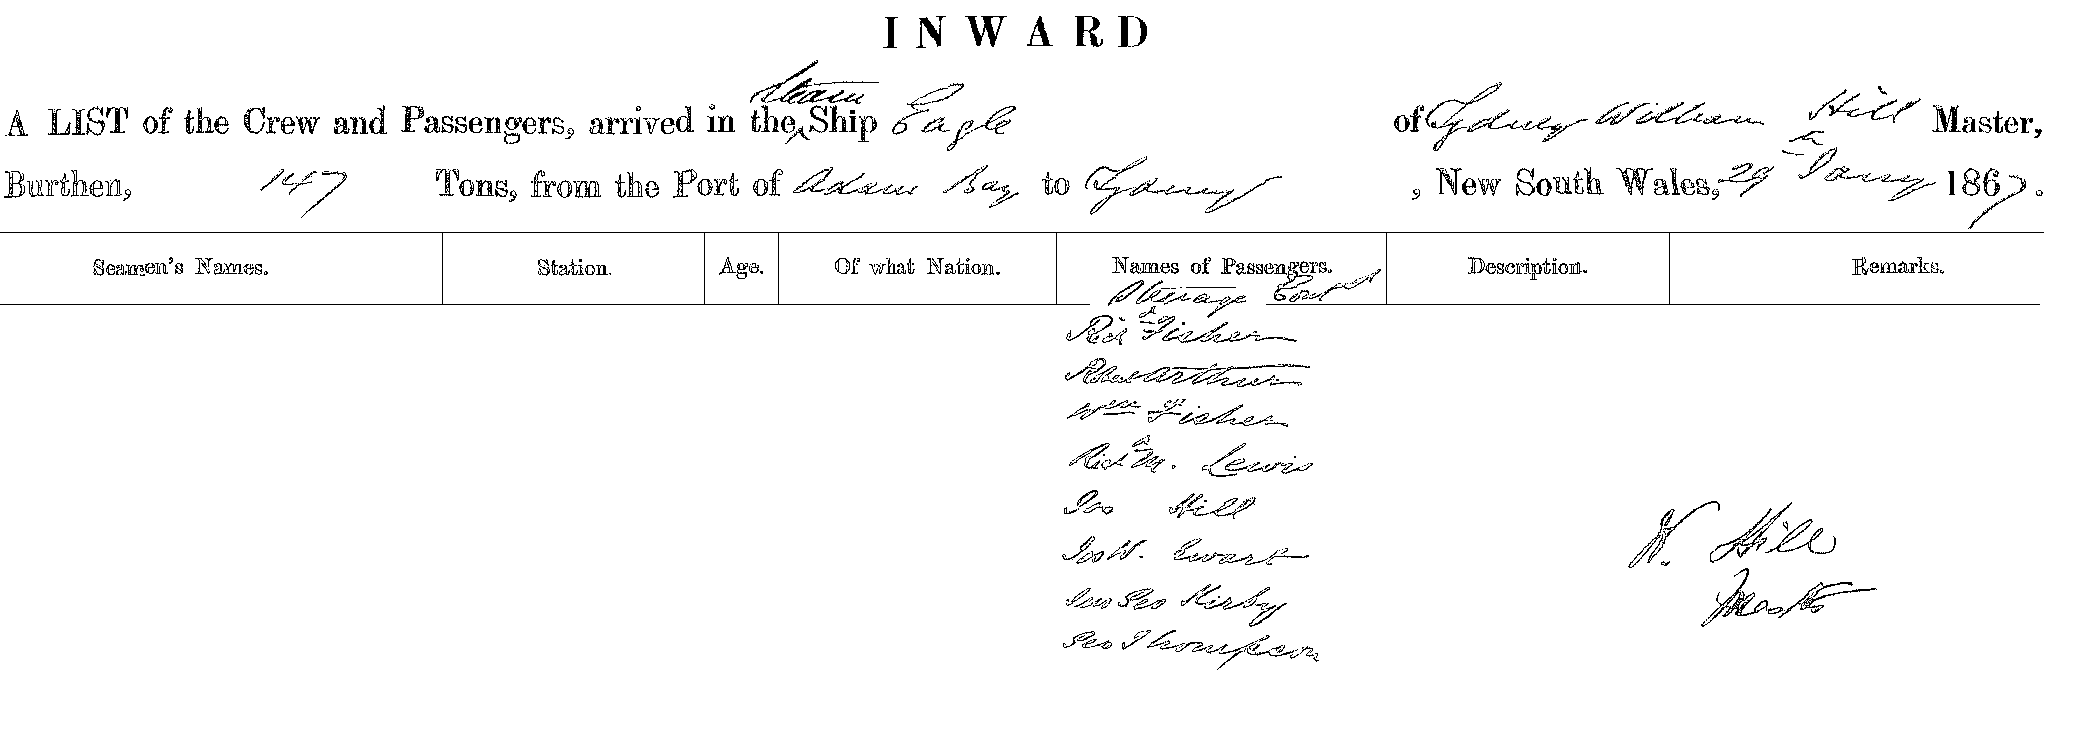 INWARD
A LIST of the Crew and Passengers, arrived in the Steam Ship Eagle of Sydney William Hill Master,
Burthen, 147 Tons, from the Port of Adam Bay to Sydney, New South Wales, 29th Jany 1867.
Seamen's Names. Station. Age. Of what Nation. Names of Passengers. Description. Remarks.
Steerage Contd
Richd Fisher
Arthur
Wm Fisher
Richd M. Lewis
Jas Hill
Jas W. Ewart
Geo Kirby
Geo Thompson
W. Hill
Master